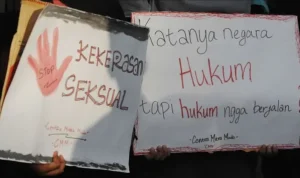 STOP
KEKERASAN
SEKSUAL
Katanya negara
Hukum
tapi hukum ngga berjalan